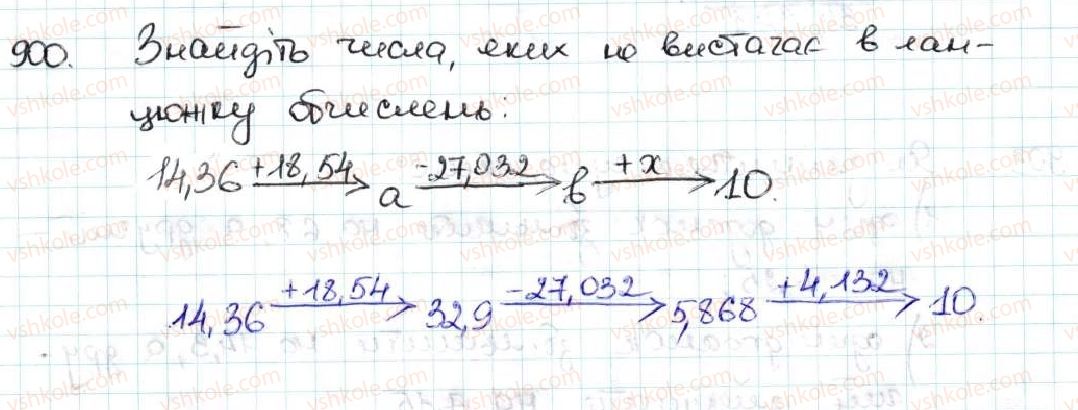 900. Знайдіть числа, яких не вистачає в лан-
цюжку обчислень:
14,36 +18,54 → a -27,032 → b +x → 10.
14,36 +18,54 → 32,9 -27,032 → 5,868 +4,132 → 10.
vshkole.com